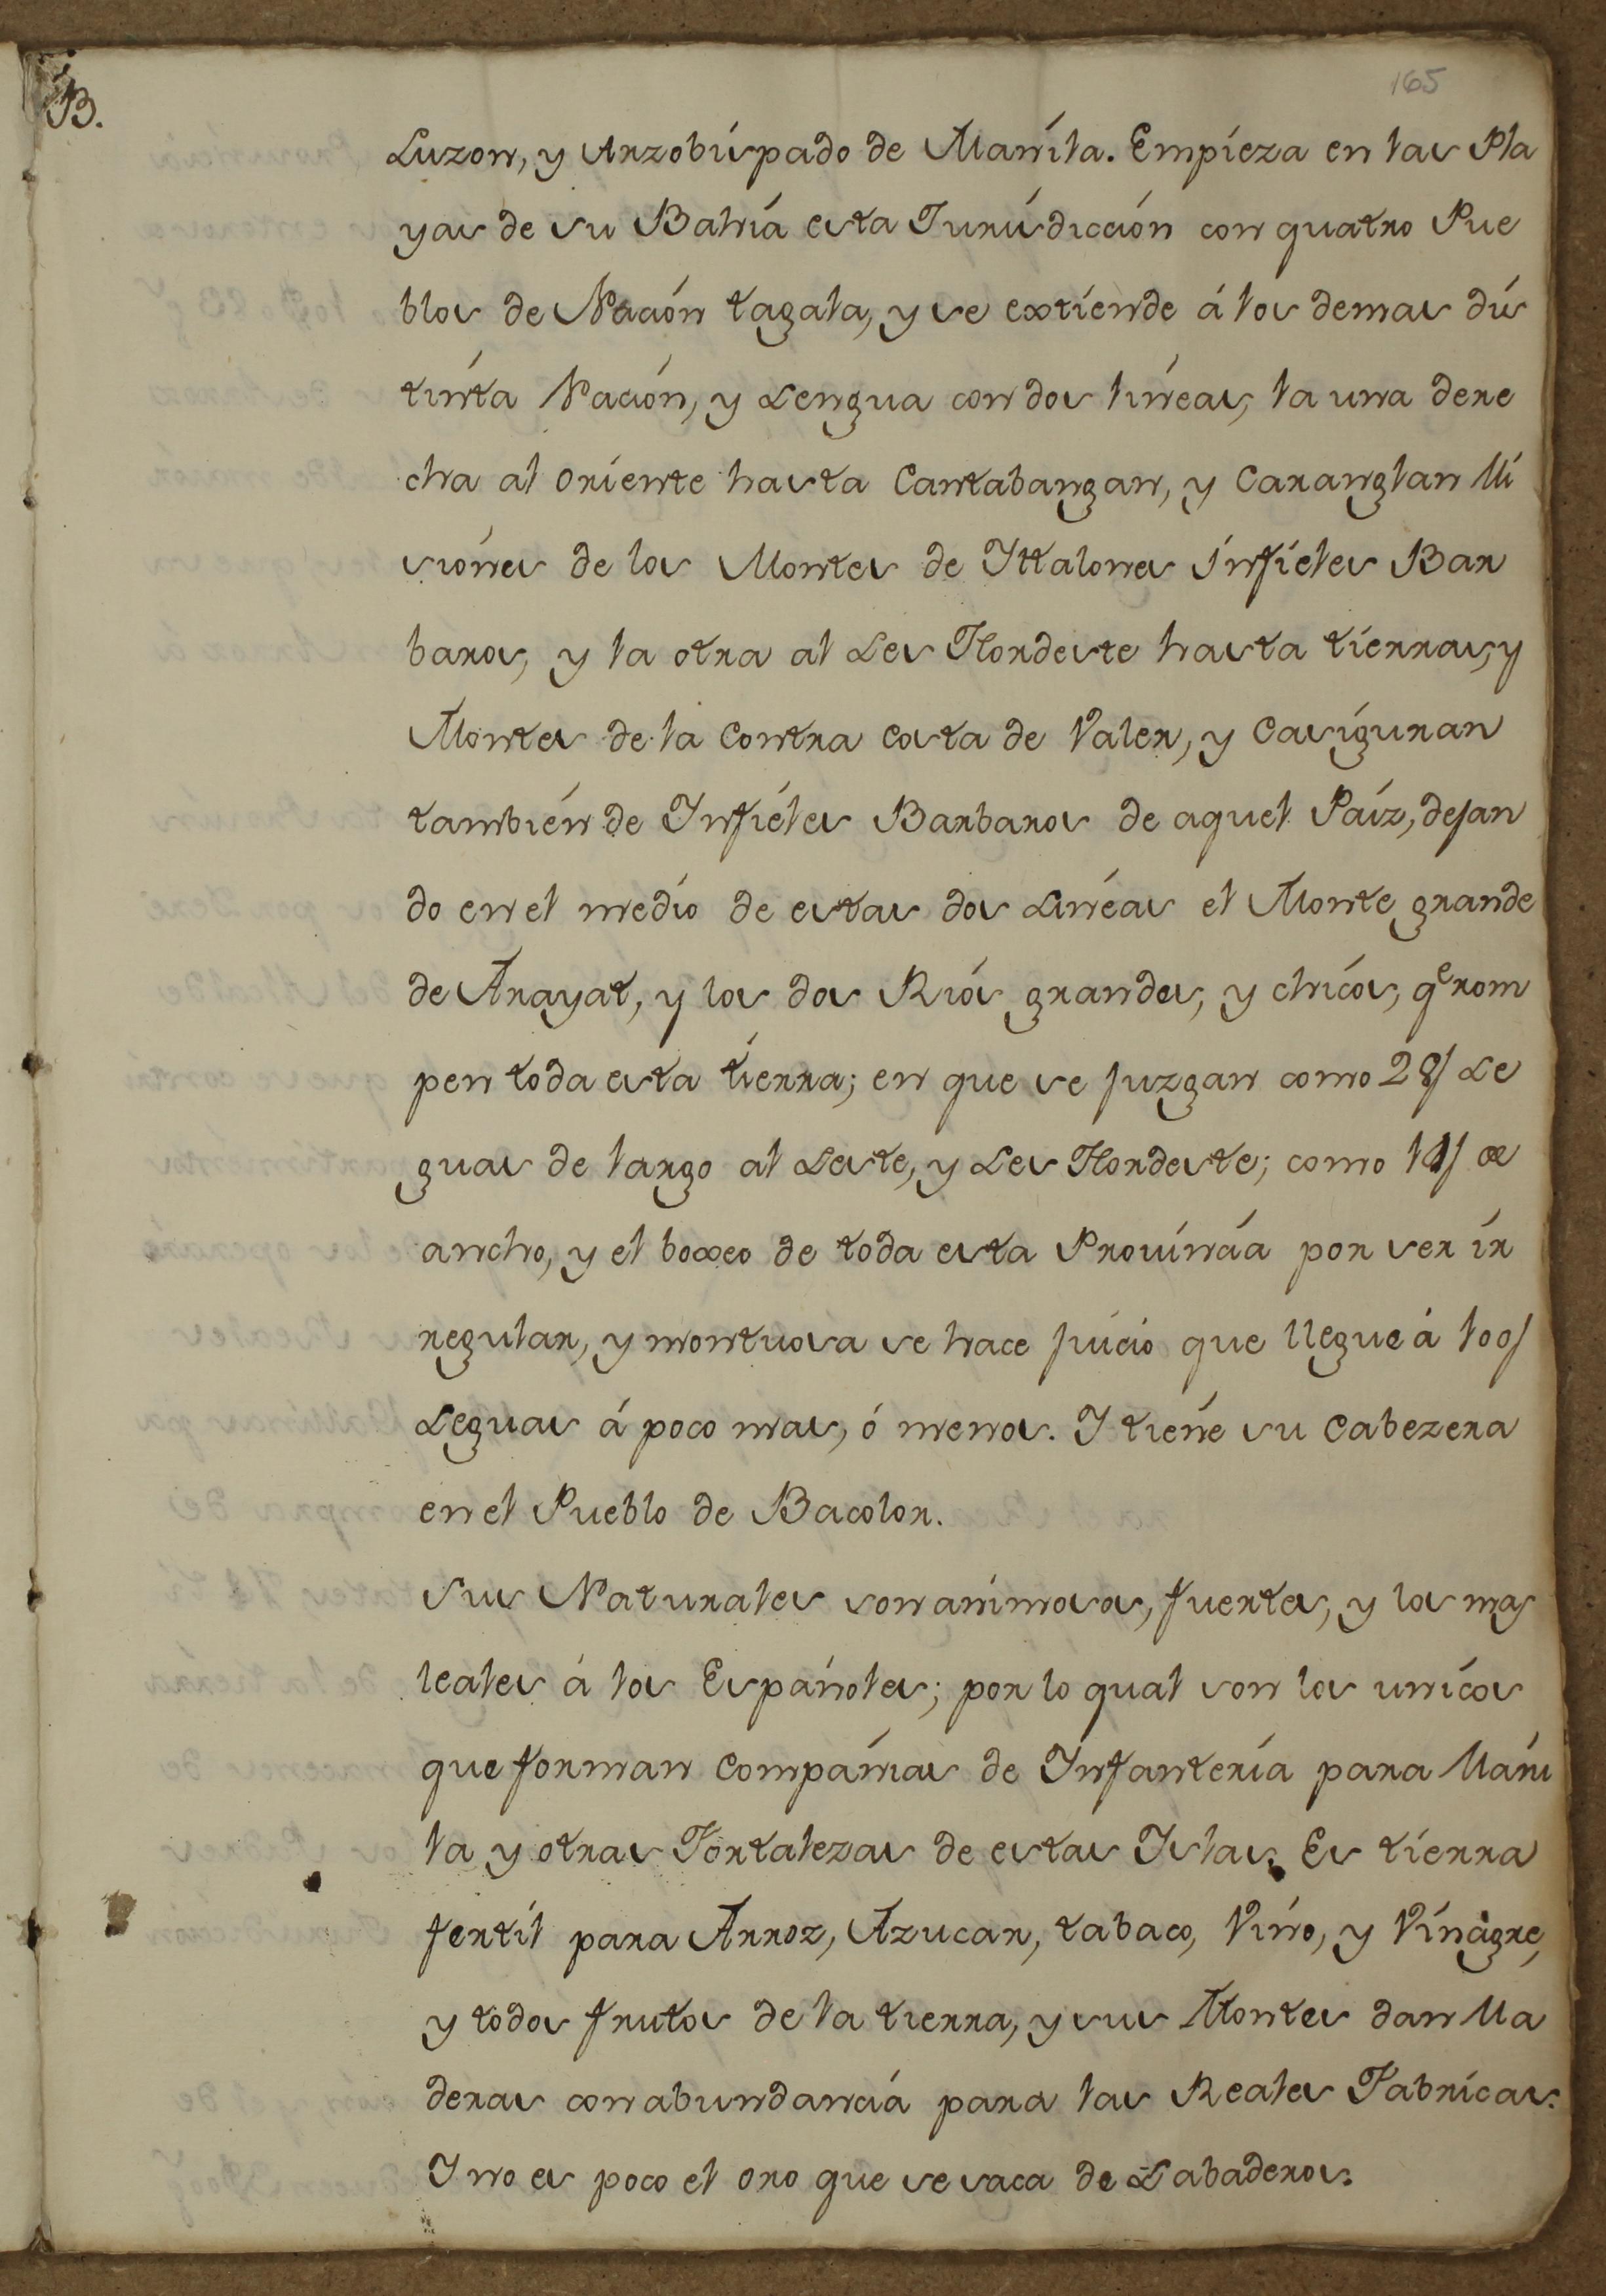 165
B.
Luzon, y Arzobispado de Manila. Empieza en las Pla
yas de su Bahia esta Jurisdiccion con quatro Pue
blos de Nacion tagala, y se extiende á los demas dis
tinta Nacion, y Lengua con dos lineas, la una dere
cha al oriente hasta Cantabangan, y Caranglan Mi
siones de los Montes de Ittalones infieles Bar
baros, y la otra al Les Nordeste hasta tierras, y
Montes de la Contra costa de Valer, y Casiguran
tambien de Infieles Barbaros de aquel Païz, dejan
do en el medio de estas dos Lineas el Monte grande
de Arayat, y los dos Rios grandes, y chicos, qe rom
pen toda esta tierra; en que se juzgan como 28/ Le
guas de largo al Leste, y Les Nordeste; como de
ancho, y el boxeo de toda esta Provincia por ser ir
regular, y montuosa se hace juicio que llegue á 100/
Leguas á poco mas, ó menos. I tiene su Cabezera
en el Pueblo de Bacolor.
Sus Naturales son animosos, fuertes, y los mas
leales á los Españoles; por lo qual son los unicos
que forman Compañias de Infanteria para Mani
la y otras Fortalezas de estas Islas. Es tierra
fertil para Arroz, Azucar, tabaco, Vino, y Vinagre,
y todos frutos de la tierra, y sus Montes dan Ma
deras con abundancia para las Reales Fabricas.
I no es poco el oro que se saca de Labaderos.